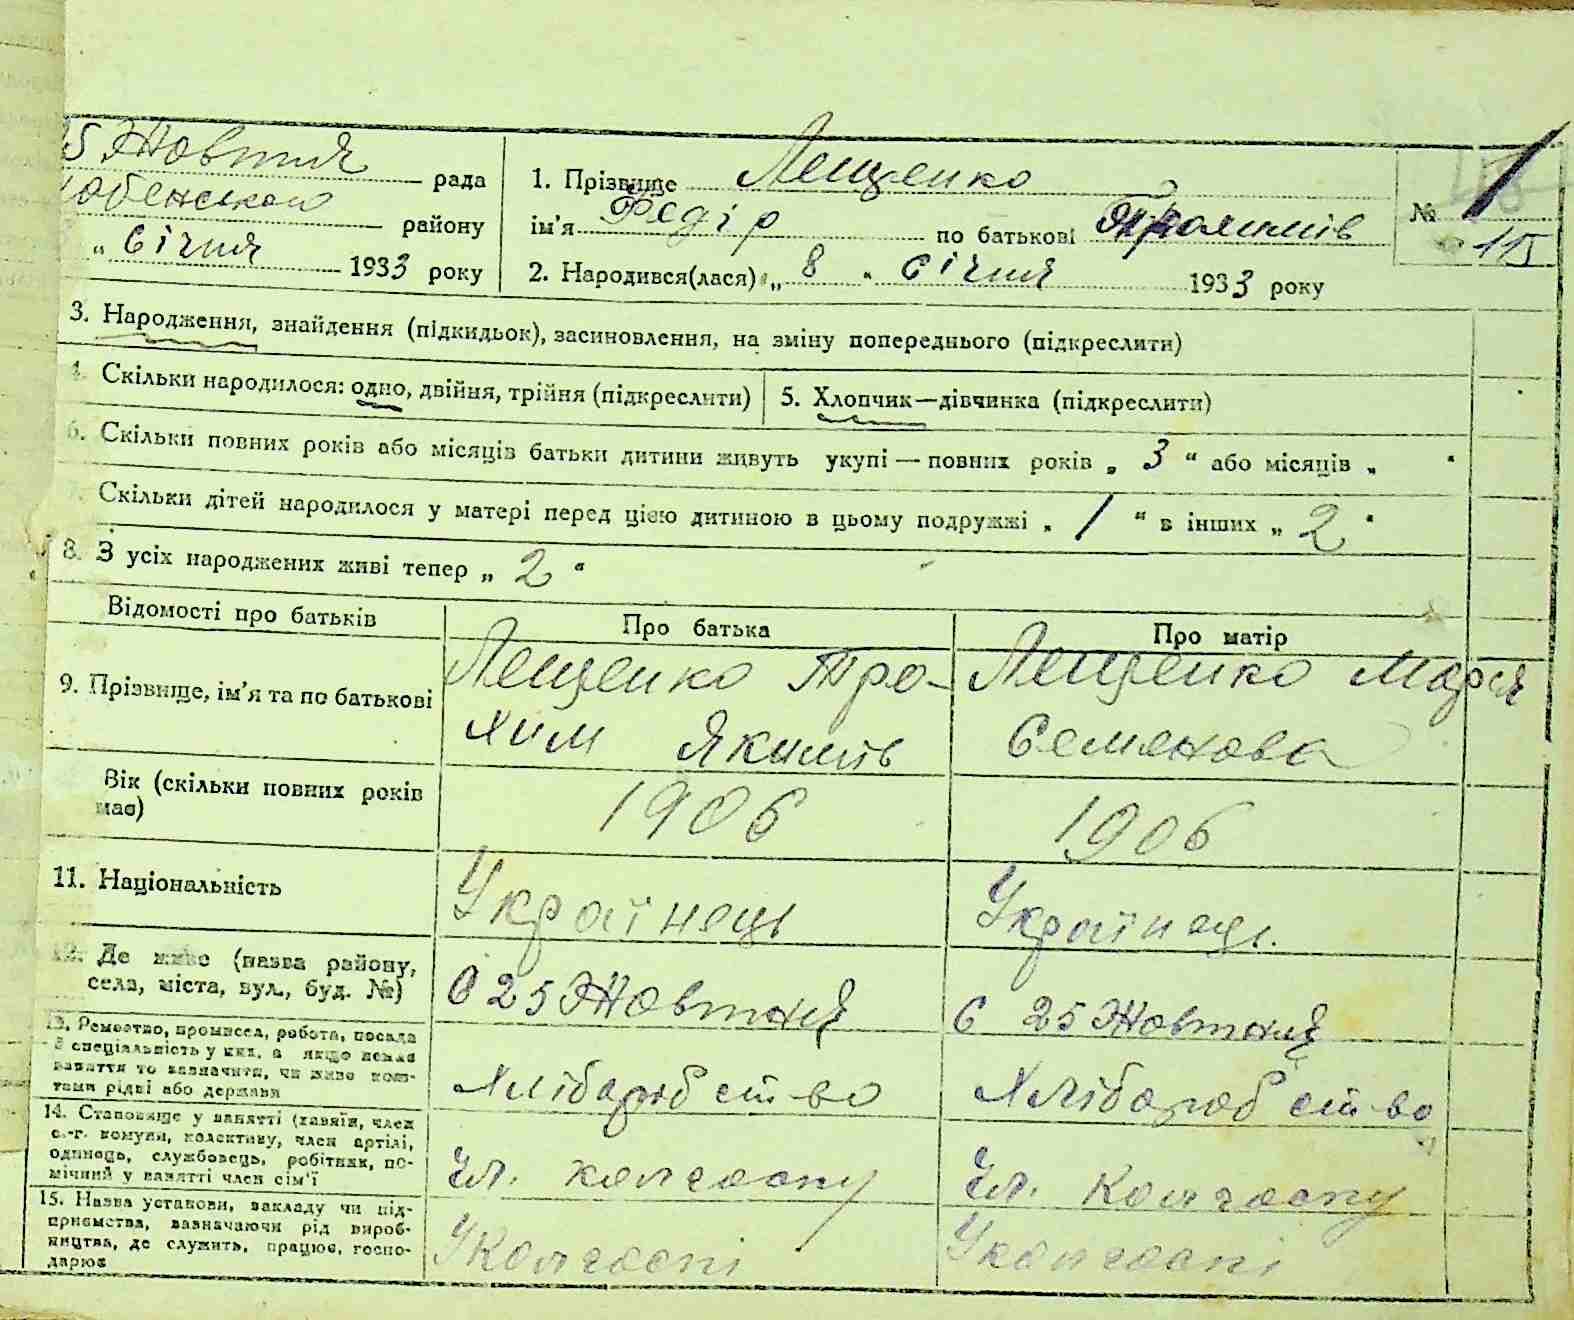 25 Жовтня рада
районy
„ Січня 1933 року
1. Прізвище Лещенко
ім'я Федір по батькові Трохимів
2. Народився(лася) „ 8 “ Січня 1933 року
№ 1
115
3. Народження, знайдення (підкидьок), засиновлення, на зміну попереднього (підкреслити)
4. Скільки народилося: одно, двійня, трійня (підкреслити)
5. Хлопчик—дівчинка (підкреслити)
6. Скільки повних років або місяців батьки дитини живуть укупі — повних років „ 3 “ або місяців „ “
7. Скільки дітей народилося у матері перед цією дитиною в цьому подружжі „ 1 “ в інших „ 2 “
8. З усіх народжених живі тепер „ 2 “
Відомості про батьків
Про батька
Про матір
9. Прізвище, ім'я та по батькові
Лещенко Тро-
хим Якимів
Лещенко Марія
Семенова
Вік (скільки повних років
має)
1906
1906
11. Національність
Українець
Українець.
12. Де живе (назва району,
села, міста, вул., буд. №)
С 25 Жовтня
С 25 Жовтня
13. Ремество, промисел, робота, посада
й спеціальність у них, а якщо немає
заняття то зазначити, чи живе кош-
тами рідні або держави
Хліборобство
Хліборобство
14. Становище у занятті (хазяїн, член
с.-г. комуни, колективу, член артілі,
одинець, службовець, робітник, по-
мічний у занятті член сім'ї
Чл. колгоспу
Чл. колгоспу
15. Назва установи, закладу чи під-
приємства, зазначаючи рід вироб-
ництва, де служить, працює, госпо-
дарює
У колгоспі
У колгоспі